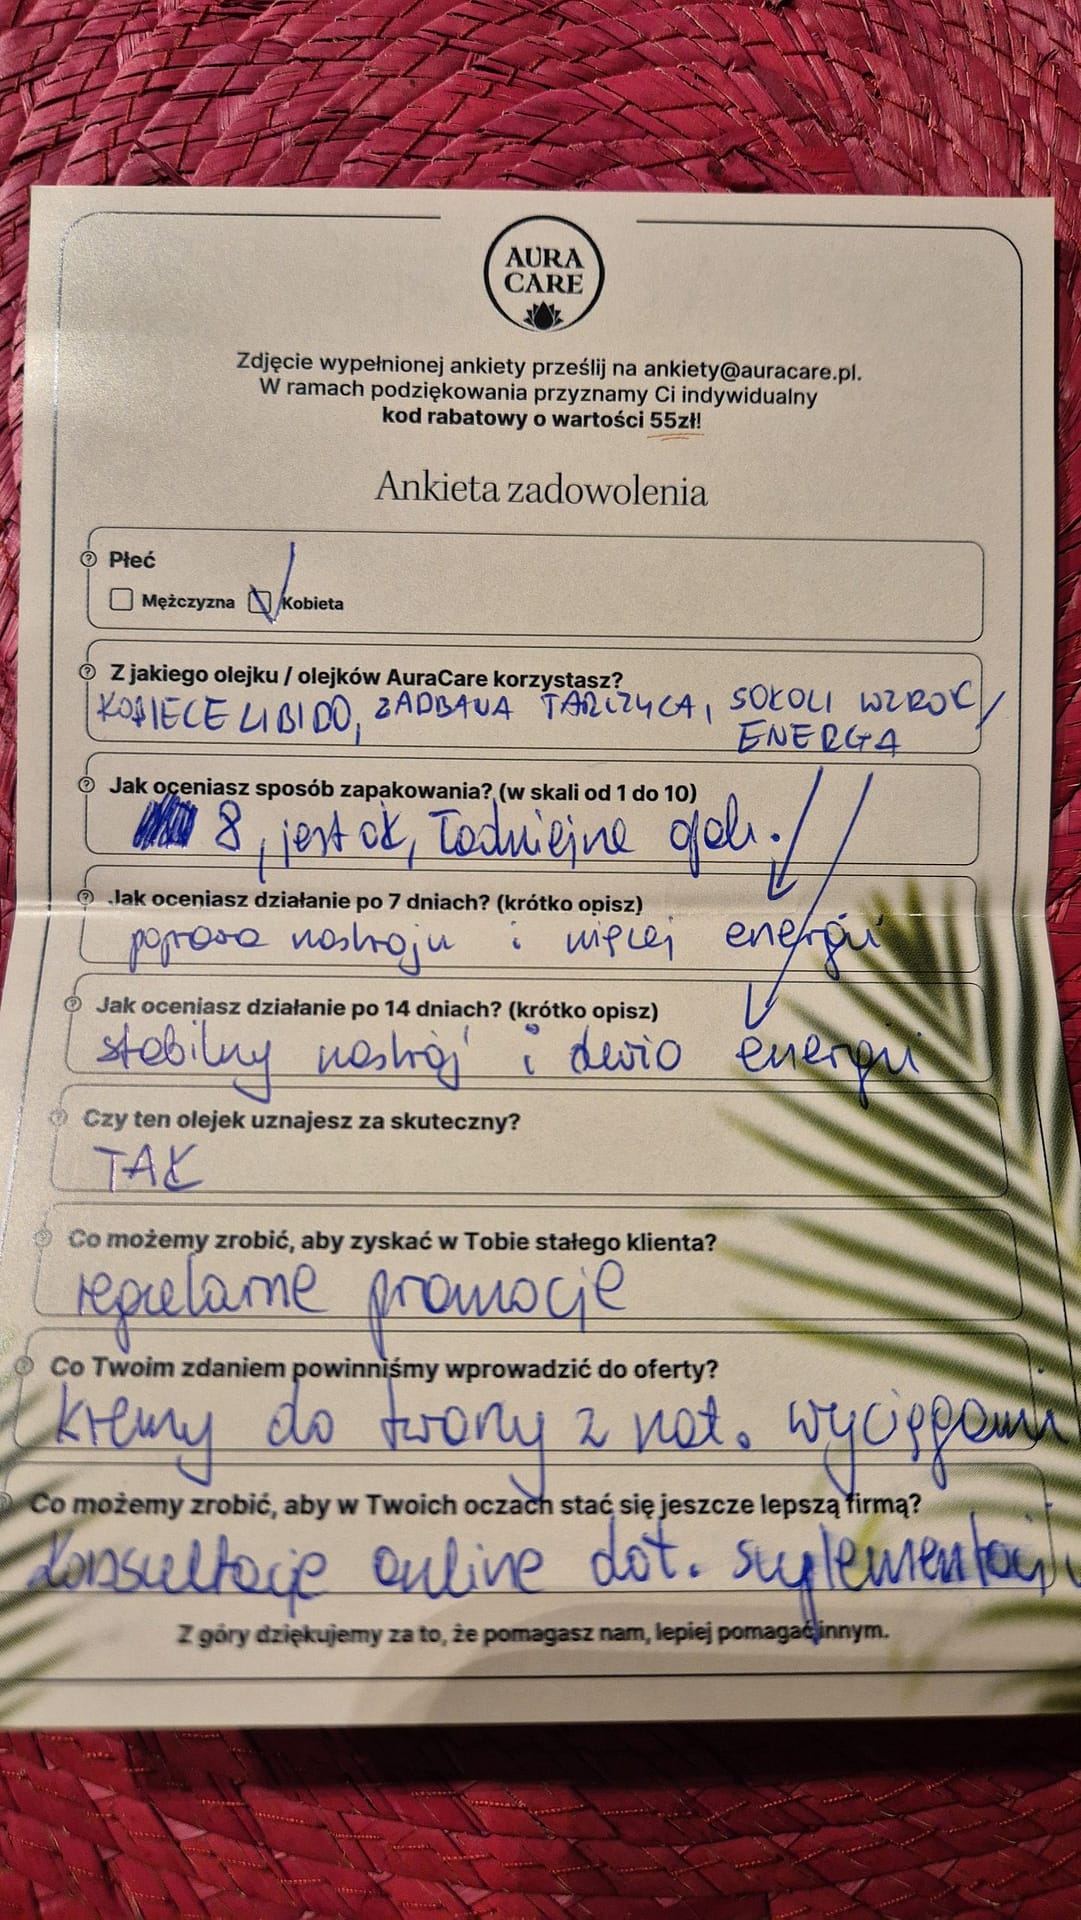 AURA
CARE
Zdjęcie wypełnionej ankiety prześlij na ankiety@auracare.pl.
W ramach podziękowania przyznamy Ci indywidualny
kod rabatowy o wartości 55zł!
Ankieta zadowolenia
Płeć
Mężczyzna Kobieta
Z jakiego olejku / olejków AuraCare korzystasz?
KOBIECE LIBIDO, ZADBANA TARCZYCA, SOKOLI WZROK,
ENERGA
Jak oceniasz sposób zapakowania? (w skali od 1 do 10)
8, jest ok,
Jak oceniasz działanie po 7 dniach? (krótko opisz)
poprawa nastroju i więcej energii
Jak oceniasz działanie po 14 dniach? (krótko opisz)
stabilny nastrój i dużo energii
Czy ten olejek uznajesz za skuteczny?
TAK
Co możemy zrobić, aby zyskać w Tobie stałego klienta?
regularne promocje
Co Twoim zdaniem powinniśmy wprowadzić do oferty?
kremy do twarzy z nat. wyciągami
Co możemy zrobić, aby w Twoich oczach stać się jeszcze lepszą firmą?
konsultacje online dot. suplementacji
Z góry dziękujemy za to, że pomagasz nam, lepiej pomagać innym.